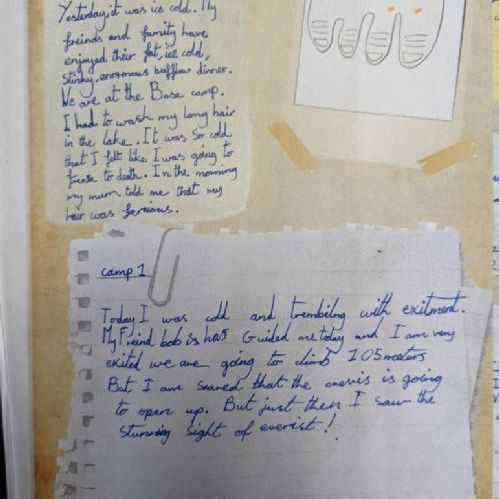 Yesterday,it was ice cold. My
freinds and family have
enjoyed their fat, ice cold,
stinky, enormous bufflow dinner.
We are at the Base camp.
I had to wash my long hair
in the lake. It was so cold
that I felt like I was going to
frease to death. In the morning
my mum told me that my
hair was ferocious.
camp 1
Today I was cold and trembiling with exitment.
My Freind bob is has Guided me today and I am very
exited we are going to climb 105 meters
But I am scared that the crevis is going
to open up. But just then I saw the
stunning sight of everist!